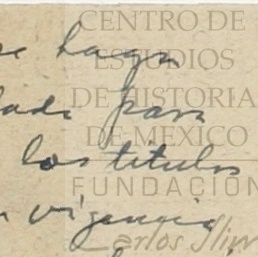 se haga
para
los titulos
vigencia
CENTRO DE
ESTUDIOS
DE HISTORIA
DE MEXICO
FUNDACIÓN
Carlos Slim